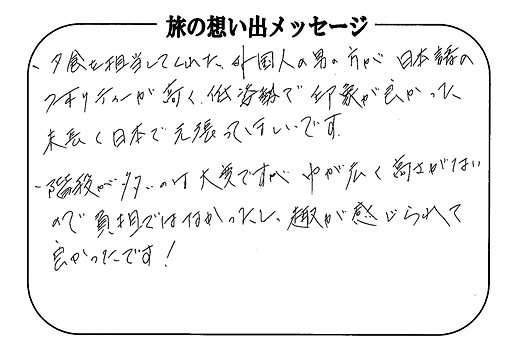 旅の想い出メッセージ
・夕食を担当してくれた、外国人の男の方が日本語の
クオリティーが高く、低姿勢で印象が良かった
末長く日本で頑張ってほしいです。
・階段が多いのは大変ですが 中が広く高さがない
ので負担ではなかったし、趣が感じられて
良かったです！